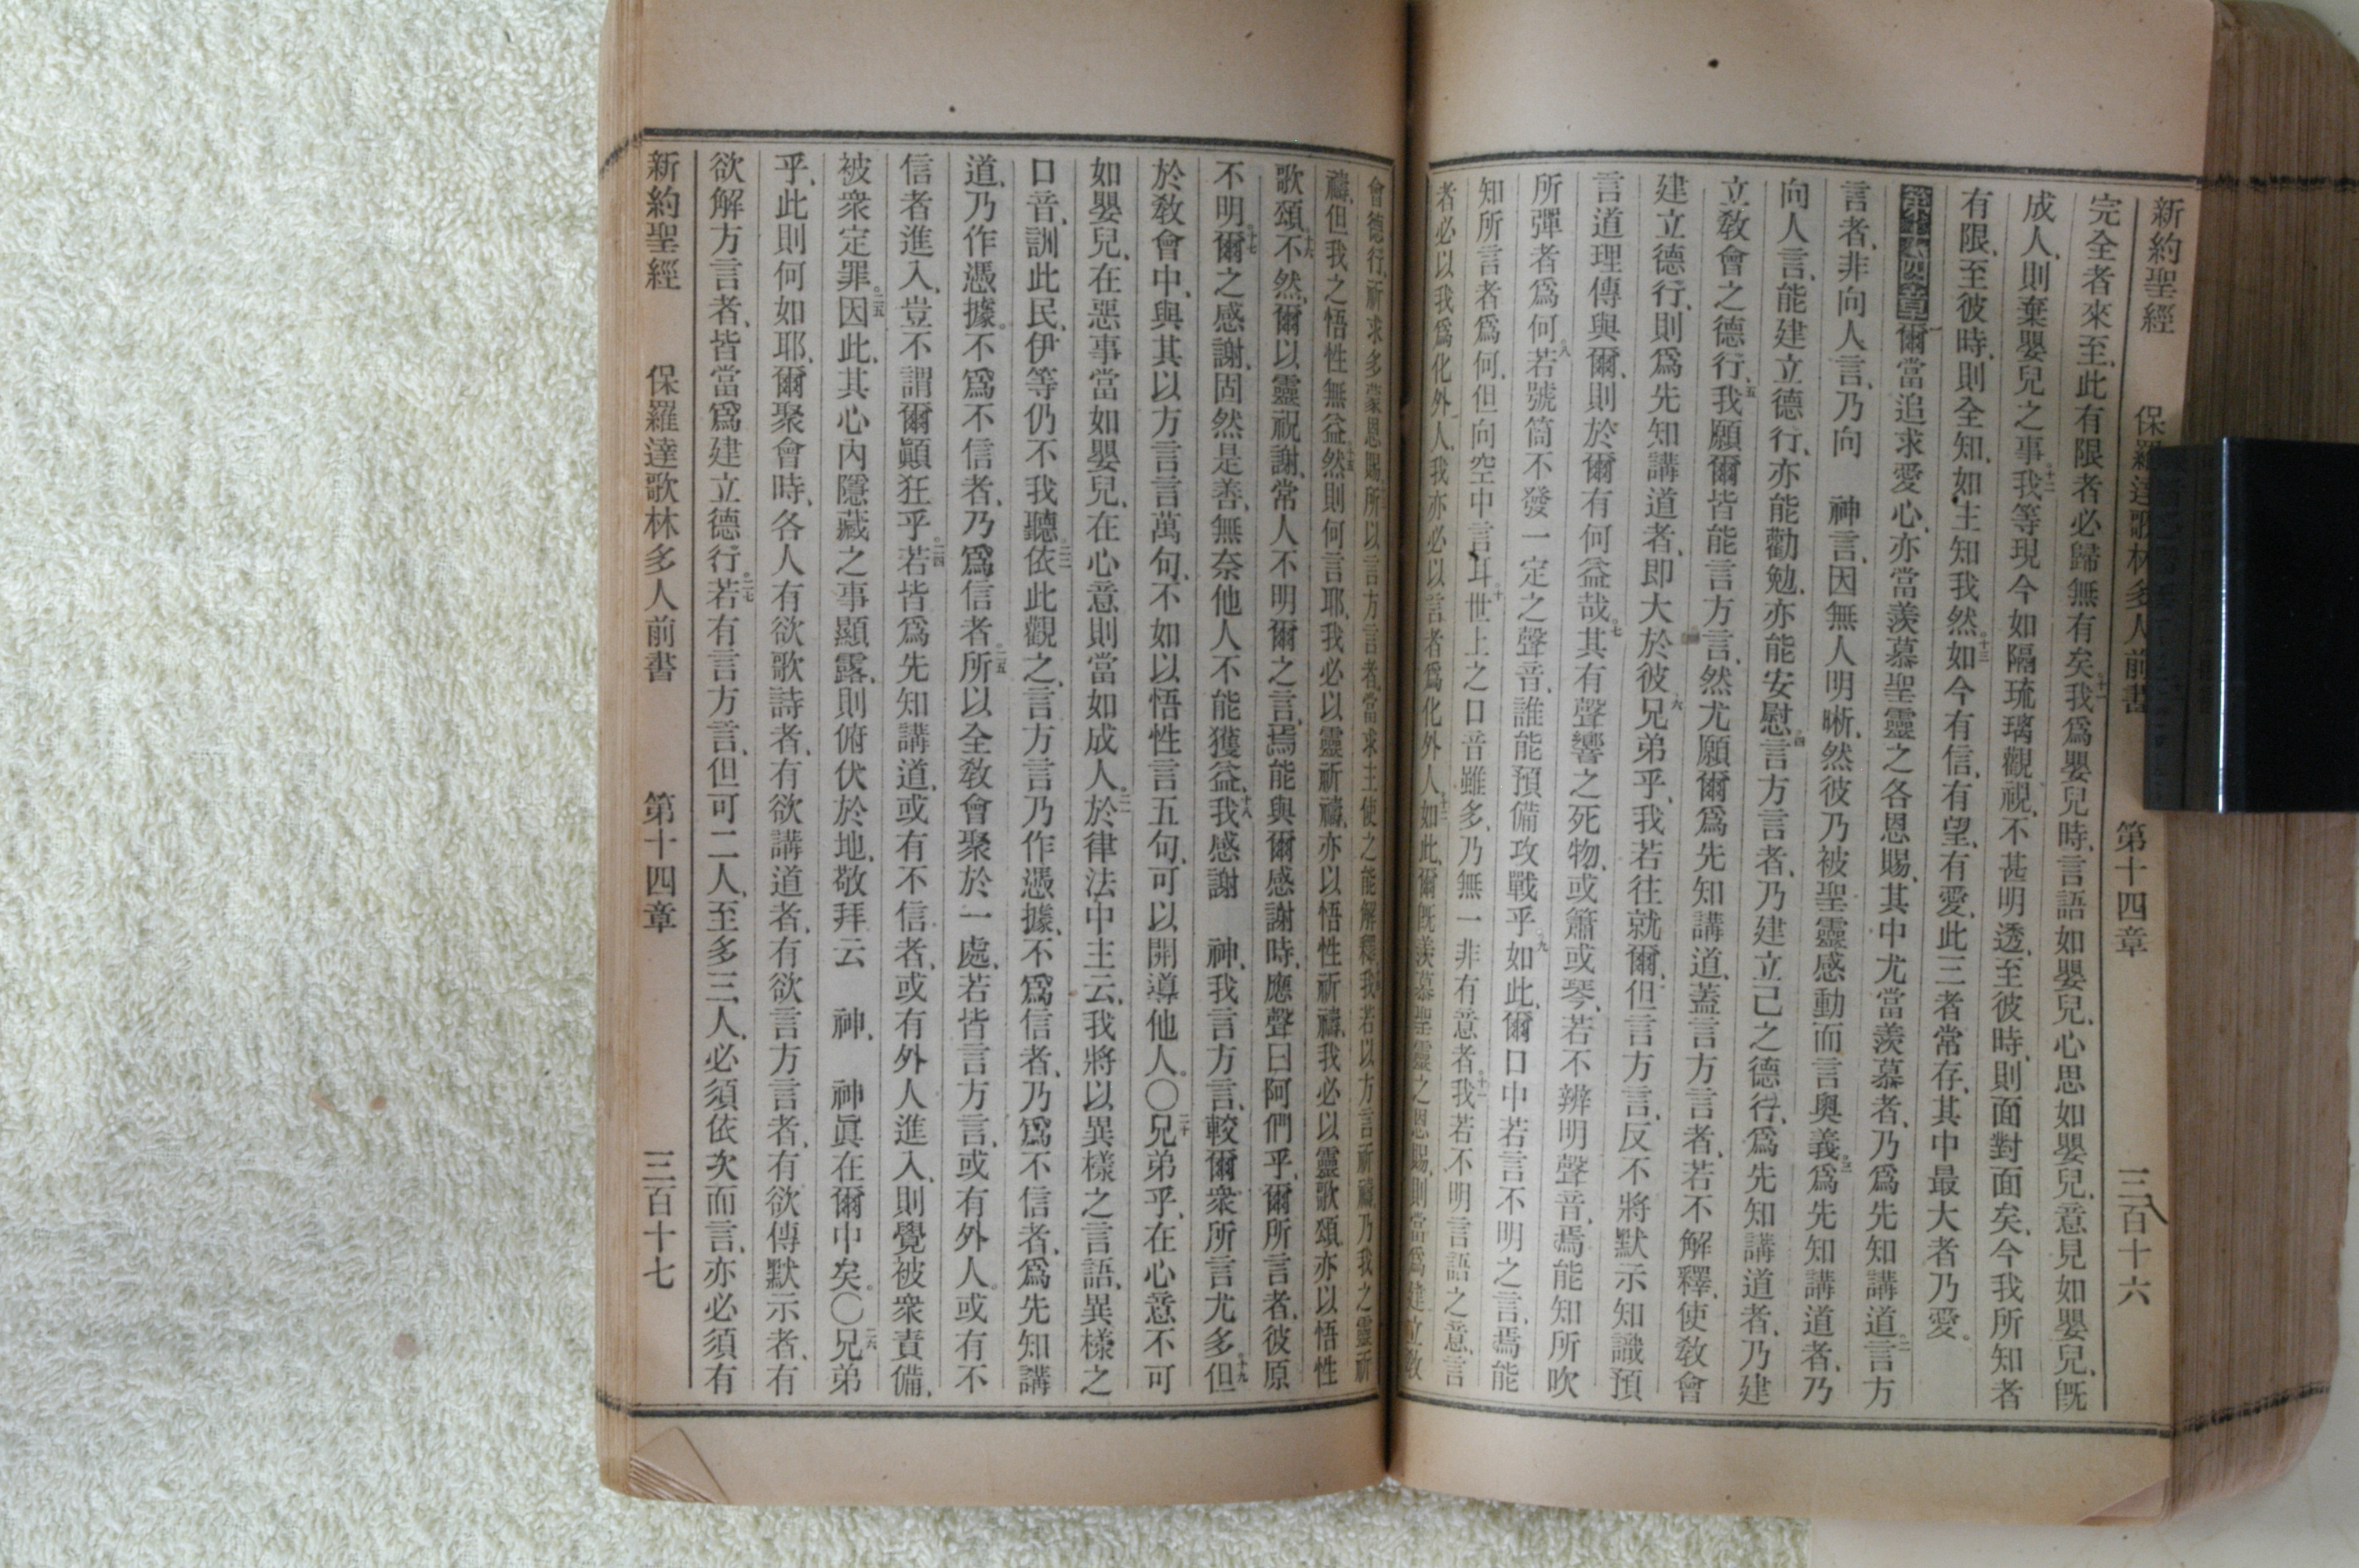 新約聖經 保羅達歌林多人前書 第十四章 三百十六
完全者來至、此有限者必歸無有矣。十一我爲嬰兒時、言語如嬰兒、心思如嬰兒、意見如嬰兒、旣
成人、則棄嬰兒之事。十二我等現今如隔琉璃觀視、不甚明透、至彼時、則面對面矣、今我所知者
有限、至彼時、則全知、如主知我然。十三如今有信、有望、有愛、此三者常存、其中最大者乃愛。
第十四章 一爾當追求愛心、亦當羨慕聖靈之各恩賜、其中尤當羨慕者、乃爲先知講道。二言方
言者、非向人言、乃向 神言、因無人明晰、然彼乃被聖靈感動而言奧義。三爲先知講道者、乃
向人言、能建立德行、亦能勸勉、亦能安慰。四言方言者、乃建立己之德行、爲先知講道者、乃建
立敎會之德行。五我願爾皆能言方言、然尤願爾爲先知講道、蓋言方言者、若不解釋、使敎會
建立德行、則爲先知講道者、即大於彼。六兄弟乎、我若往就爾、但言方言、反不將默示知識預
言道理傳與爾、則於爾有何益哉。七其有聲響之死物、或簫或琴、若不辨明聲音、焉能知所吹
所彈者爲何。八若號筒不發一定之聲音、誰能預備攻戰乎。九如此、爾口中若言不明之言、焉能
知所言者爲何、但向空中言耳。十世上之口音雖多、乃無一非有意者。十一我若不明言語之意、言
者必以我爲化外人、我亦必以言者爲化外人。十二如此、爾旣羨慕聖靈之恩賜、則當爲建立敎
會德行、祈求多蒙恩賜。所以言方言者、當求主使之能解釋。我若以方言祈禱、乃我之靈祈
禱、但我之悟性無益。十五然則何言耶、我必以靈祈禱、亦以悟性祈禱、我必以靈歌頌、亦以悟性
歌頌。十六不然、爾以靈祝謝、常人不明爾之言、焉能與爾感謝時、應聲曰阿們乎、爾所言者、彼原
不明。十七爾之感謝、固然是善、無奈他人不能獲益。十八我感謝 神、我言方言、較爾衆所言尤多。十九但
於敎會中、與其以方言言萬句、不如以悟性言五句、可以開導他人。○二十兄弟乎、在心意不可
如嬰兒、在惡事當如嬰兒、在心意則當如成人。二一於律法中主云、我將以異樣之言語、異樣之
口音、訓此民、伊等仍不我聽。二二依此觀之、言方言乃作憑據、不爲信者、乃爲不信者、爲先知講
道、乃作憑據。不爲不信者、乃爲信者。二五所以全敎會聚於一處、若皆言方言、或有外人。或有不
信者進入、豈不謂爾顚狂乎。二四若皆爲先知講道、或有不信者、或有外人進入、則覺被衆責備、
被衆定罪。二五因此、其心內隱藏之事顯露、則俯伏於地、敬拜云 神、 神眞在爾中矣。○二六兄弟
乎、此則何如耶、爾聚會時、各人有欲歌詩者、有欲講道者、有欲言方言者、有欲傳默示者、有
欲解方言者、皆當爲建立德行。二七若有言方言、但可二人、至多三人、必須依次而言、亦必須有
新約聖經 保羅達歌林多人前書 第十四章 三百十七